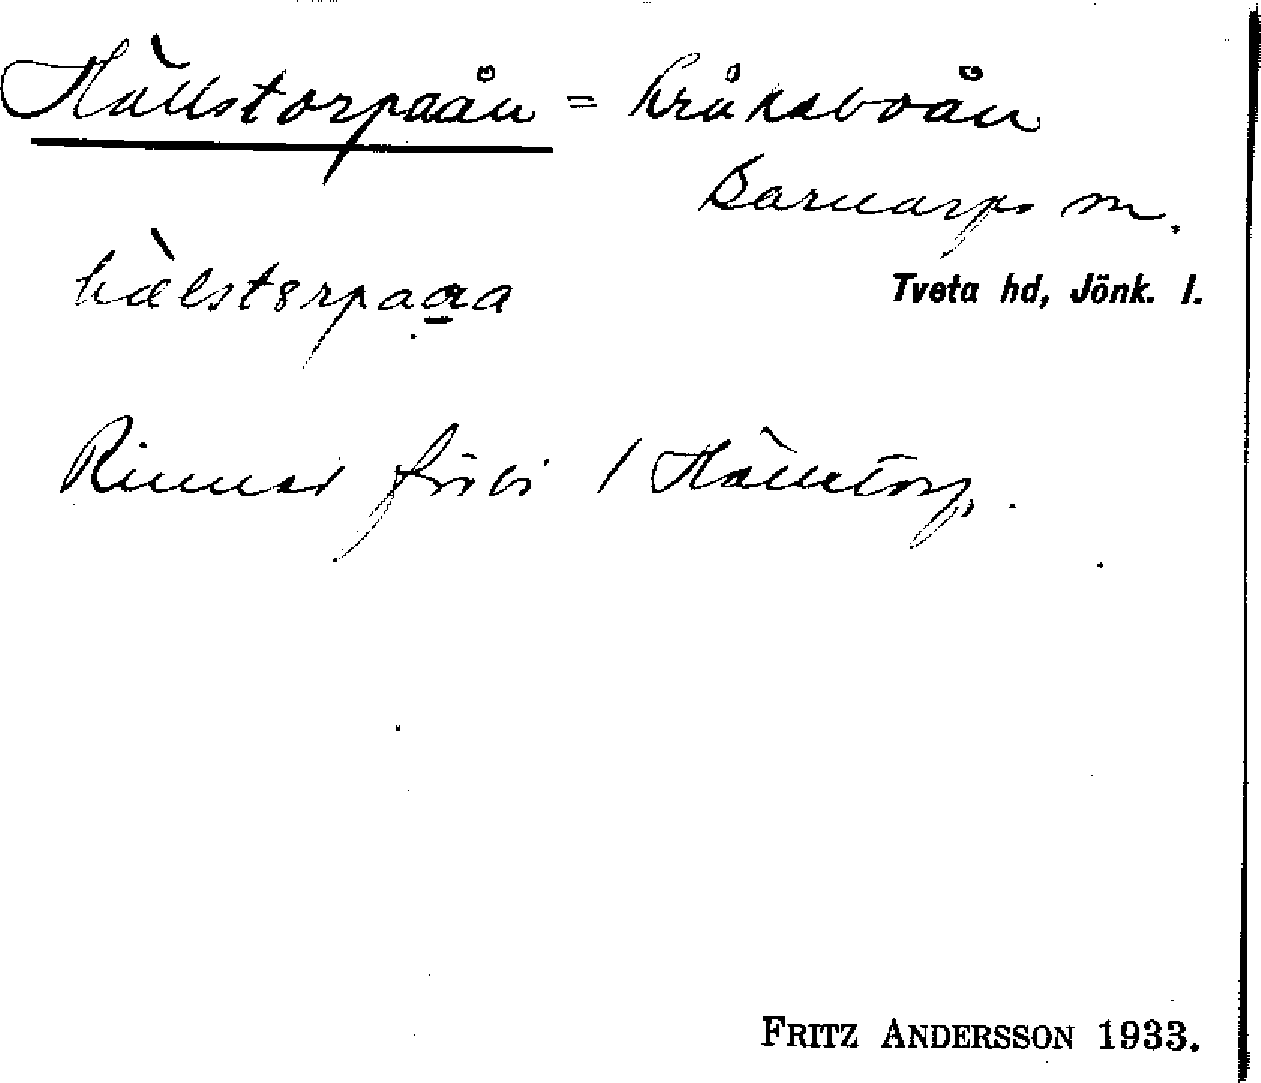 Hällstorpaån = Kråkeboån
Barnarps sn.
Tveta hd, Jönk. l.
hälstorpaaa
Rinner förbi / Hällstorp.
FRITZ ANDERSSON 1933.